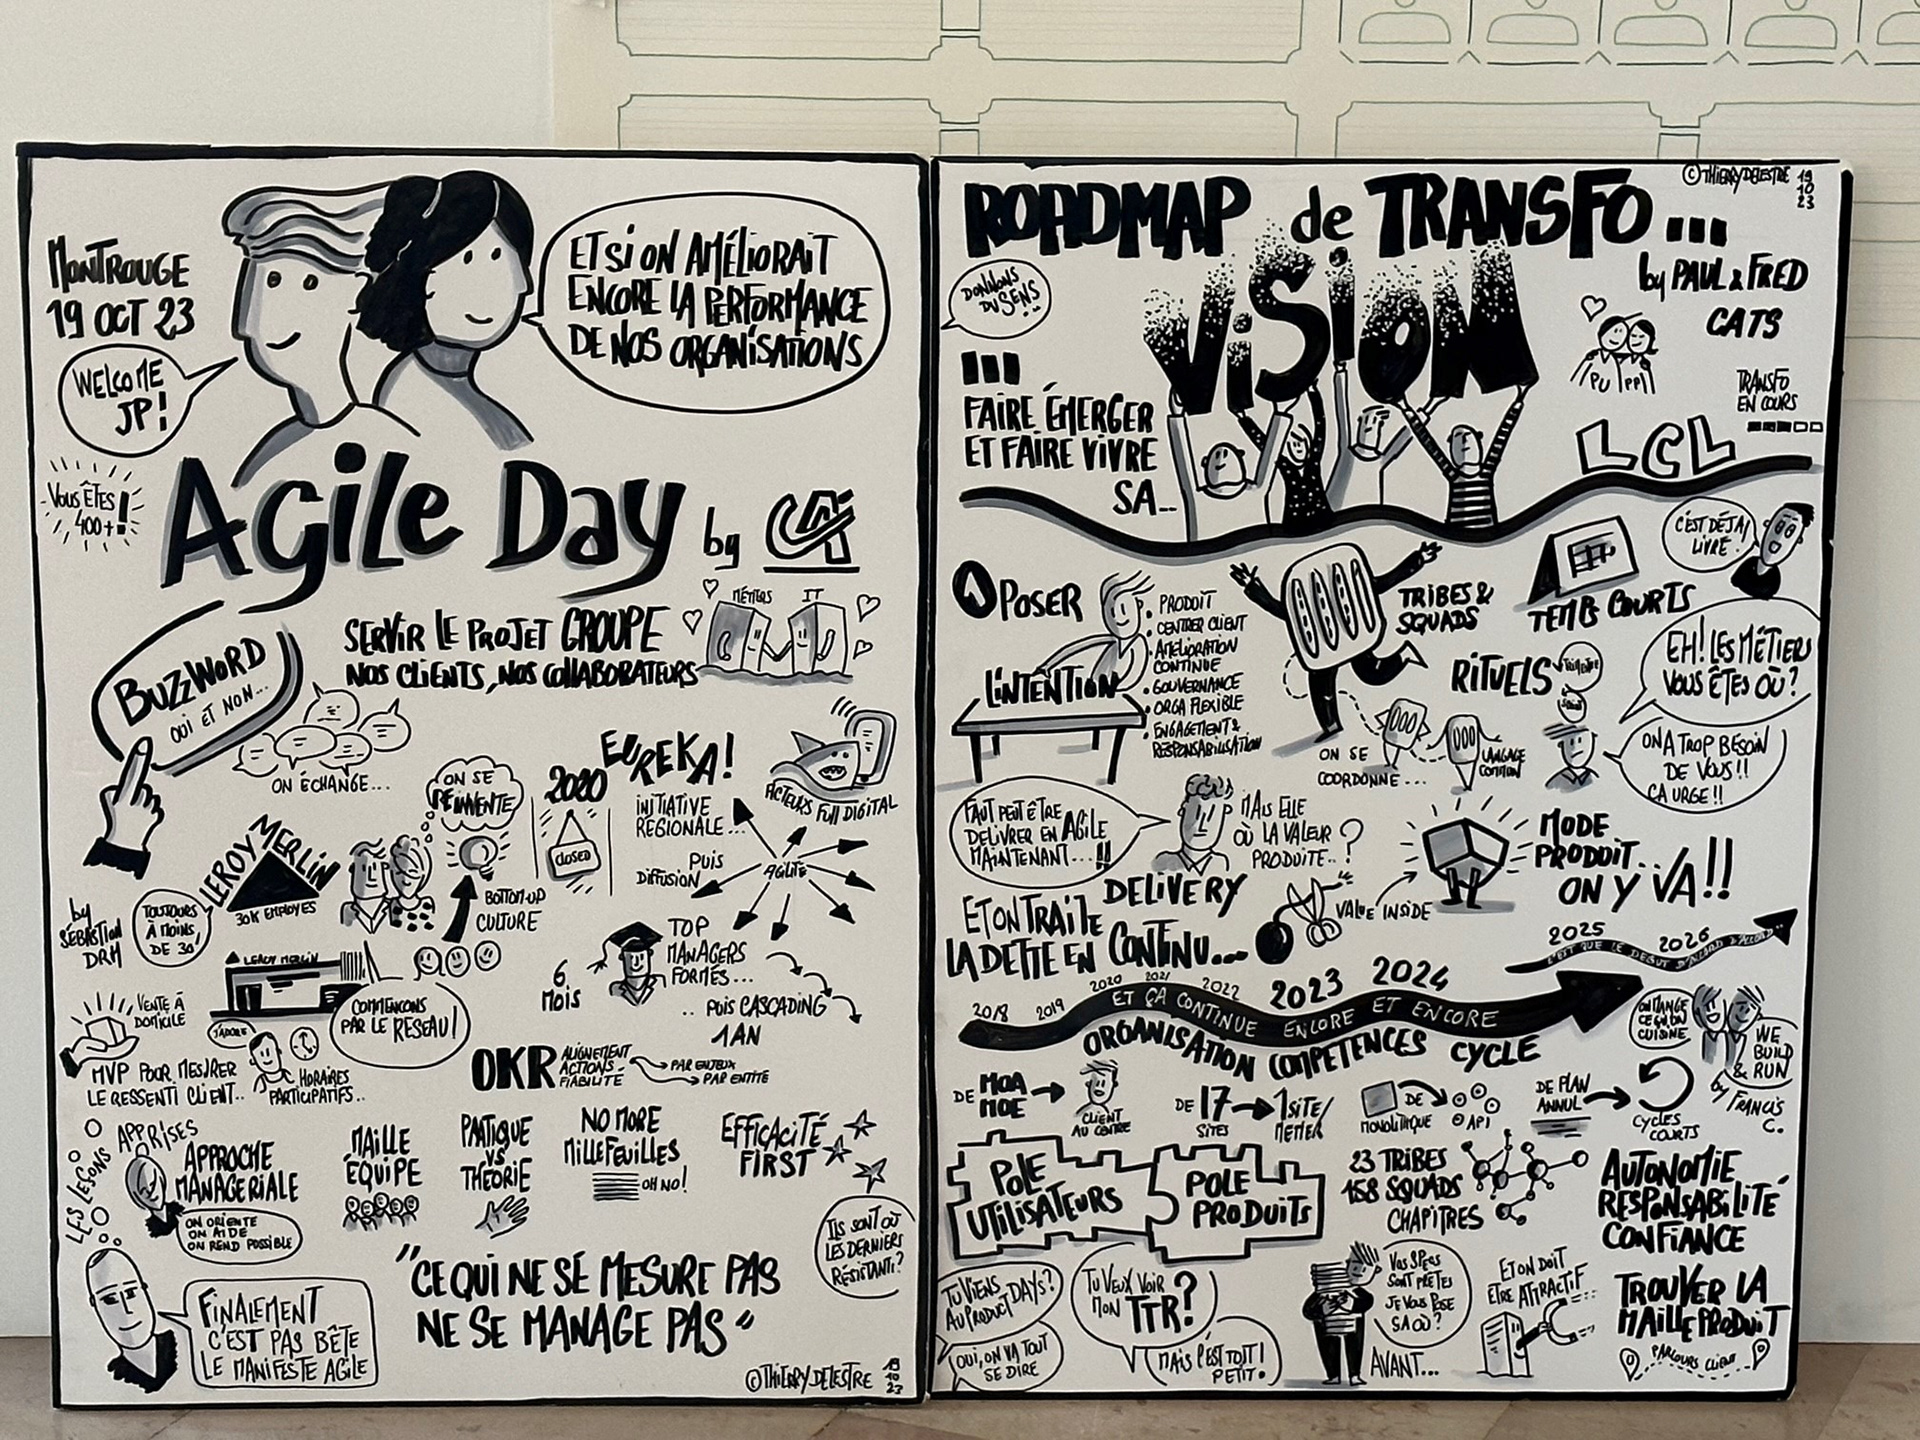 MONTROUGE
19 OCT 23
WELCOME
JP!
ET SI ON AMÉLIORAIT
ENCORE LA PERFORMANCE
DE NOS ORGANISATIONS
VOUS ÊTES
400+!
AGiLE DAY
by CA
SERVIR LE PROJET GROUPE
NOS CLIENTS, NOS COLLABORATEURS
MÉTIERS
IT
BUZZWORD
OUI ET NON...
ON ÉCHANGE...
LEROY MERLIN
30K EMPLOYES
by
SÉBASTIAN
DRM
TOUJOURS
À MOINS
DE 30!
ON SE
RÉINVENTE
BOTTOM-UP
CULTURE
2020
CLOSED
EUREKA!
INITIATIVE
RÉGIONALE...
PUIS
DIFFUSION
AGILITÉ
ACTEURS FULL DIGITAL
LEROY MERLIN
VENTE À
DOMICILE
MVP POUR MESURER
LE RESSENTI CLIENT..
J'ADORE
HORAIRES
PARTICIPATIFS..
COMMENÇONS
PAR LE RÉSEAU!
6
MOIS
TOP
MANAGERS
FORMÉS...
.. PUIS CASCADING
1 AN
OKR
ALIGNEMENT
ACTIONS
FIABILITÉ
PAR ENJEUX
PAR ENTITÉ
LES LEÇONS
APPRISES
APPROCHE
MANAGERIALE
ON ORIENTE
ON AIDE
ON REND POSSIBLE
MAILLE
ÉQUIPE
PRATIQUE
VS
THÉORIE
NO MORE
MILLEFEUILLES
OH NO!
EFFICACITÉ
FIRST
ILS SONT OÙ
LES DERNIERS
RÉSISTANTS?
FINALEMENT
C'EST PAS BÊTE
LE MANIFESTE AGILE
"CE QUI NE SE MESURE PAS
NE SE MANAGE PAS"
©THIERRY DELESTRE 19
10
23
ROADMAP de TRANSFO ...
©THIERRY DELESTRE 19
10
23
by PAUL & FRED
CATS
DONNONS
DU SENS!
ViSiON
...
FAIRE ÉMERGER
ET FAIRE VIVRE
SA...
PU
PP
TRANSFO
EN COURS
LCL
POSER
L'INTENTION
PRODUIT
CENTRER CLIENT
AMÉLIORATION
CONTINUE
GOUVERNANCE
ORGA FLEXIBLE
ENGAGEMENT &
RESPONSABILISATION
TRIBES &
SQUADS
TEMPS COURTS
C'EST DÉJÀ
LIVRÉ.
RITUELS
EH! LES MÉTIERS
VOUS ÊTES OÙ?
ON A TROP BESOIN
DE VOUS!!
ÇA URGE!!
ON SE
COORDONNE...
LANGAGE
COMMUN
FAUT PEUT ÊTRE
DELIVRER EN AGILE
MAINTENANT....!!
MAIS ELLE
OÙ LA VALEUR
PRODUITE..?
DELIVERY
VALUE INSIDE
MODE
PRODUIT..
ON Y VA!!
ET ON TRAITE
LA DETTE EN CONTINU...
2018
2019
2020
2021
2022
2023
2024
2025
2026
ET ÇA CONTINUE ENCORE ET ENCORE
C'EST QUE LE DEBUT D'ACCORD D'ACCORD...
ORGANISATION COMPETENCES CYCLE
DE MOA
MOE
CLIENT
AU CENTRE
DE 17
SITES
1 SITE/
METIER
DE
MONOLITHIQUE
API
DE PLAN
ANNUEL
CYCLES
COURTS
ON MANGE
CE QU'ON
CUISINE
WE
BUILD
& RUN
by FRANCIS
C.
POLE
UTILISATEURS
POLE
PRODUITS
23 TRIBES
158 SQUADS
CHAPITRES
AUTONOMIE
RESPONSABILITÉ
CONFIANCE
TU VIENS
AU PRODUCT DAYS?
OUI, ON VA TOUT
SE DIRE
TU VEUX VOIR
MON TTR?
MAIS C'EST TOUT
PETIT!
VOS SPECS
SONT PRETES
JE VOUS POSE
ÇA OÙ?
AVANT...
ET ON DOIT
ETRE ATTRACTIF
TROUVER LA
MAILLE PRODUIT
PARCOURS CLIENT